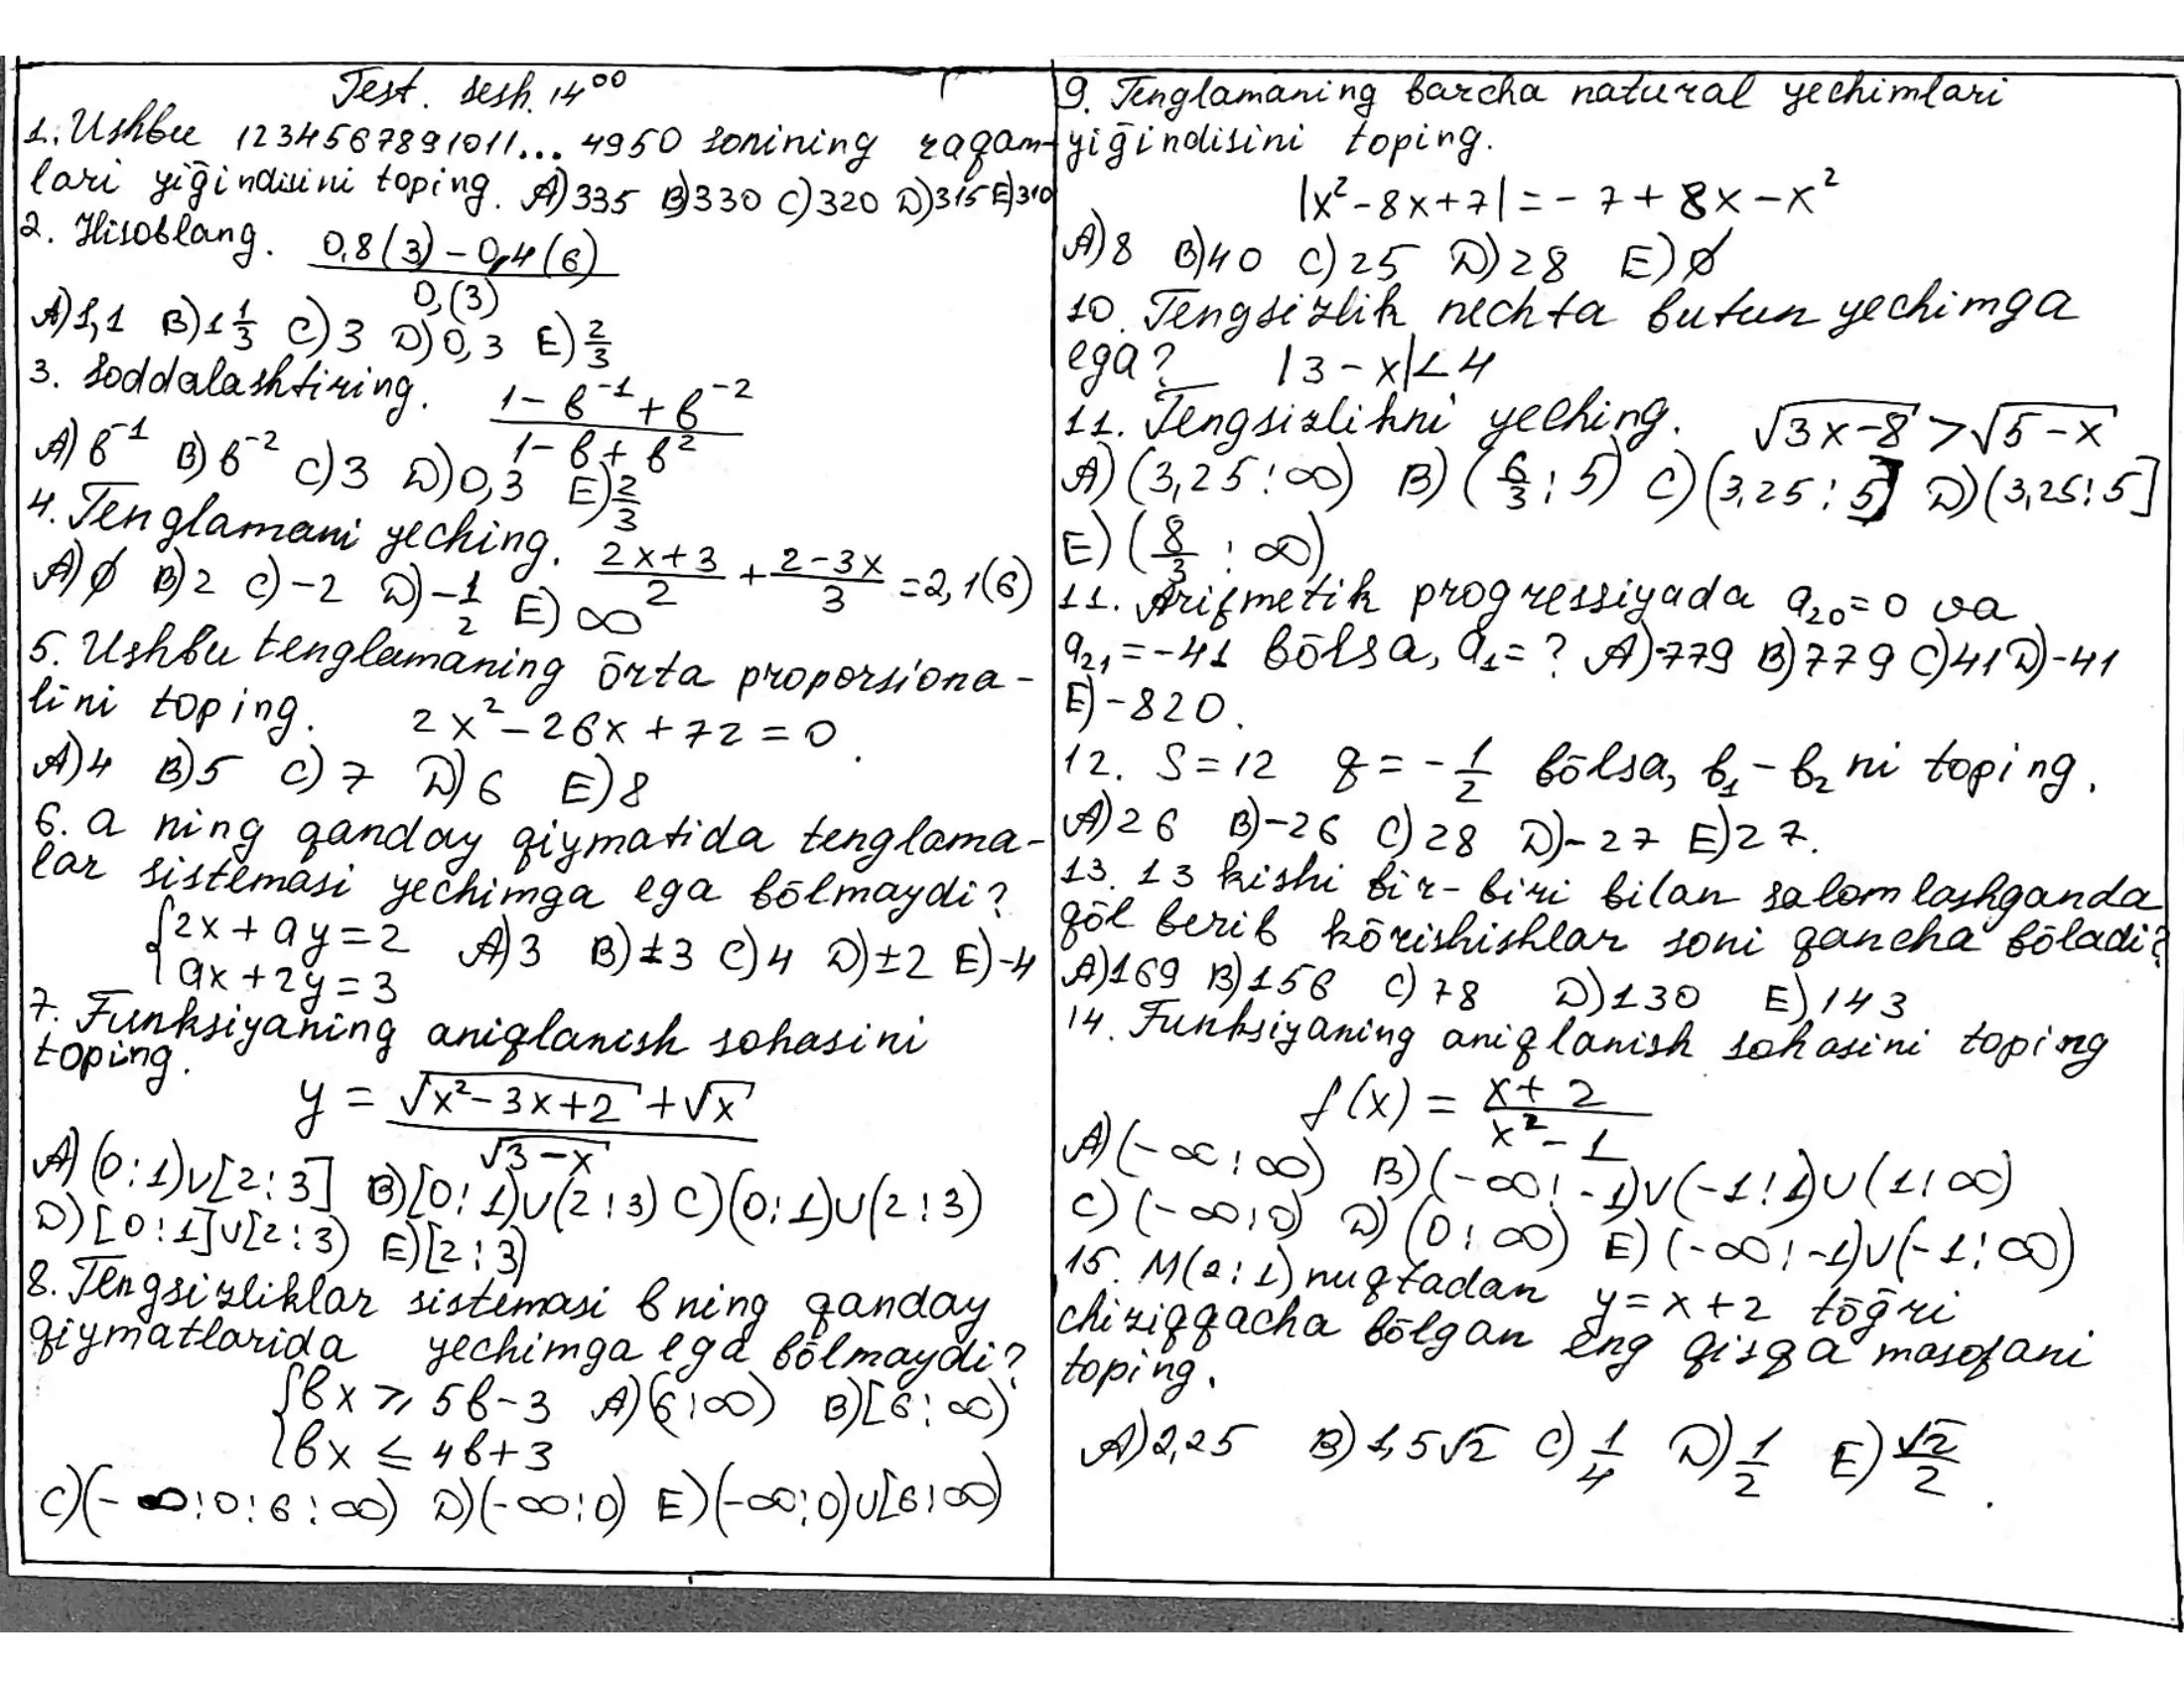 Test. sesh. 14⁰⁰
1. Ushbu 1234567891011... 4950 sonining raqam-
lari yiḡindisini toping. A) 335 B) 330 C) 320 D) 315 E) 310
2. Hisoblang. (0,8(3) - 0,4(6))/(0,(3))
A) 1,1 B) 1 1/3 C) 3 D) 0,3 E) 2/3
3. Soddalashtiring. (1 - b⁻¹ + b⁻²)/(1 - b + b²)
A) b⁻¹ B) b⁻² C) 3 D) 0,3 E) 2/3
4. Tenglamani yeching. (2x+3)/2 + (2-3x)/3 = 2,1(6)
A) ∅ B) 2 C) -2 D) -1/2 E) ∞
5. Ushbu tenglamaning ōrta proporsiona-
lini toping. 2x² - 26x + 72 = 0.
A) 4 B) 5 C) 7 D) 6 E) 8
6. a ning qanday qiymatida tenglama-
lar sistemasi yechimga ega bōlmaydi?
{2x + ay = 2 A) 3 B) ±3 C) 4 D) ±2 E) -4
{ax + 2y = 3
7. Funksiyaning aniqlanish sohasini
toping.
y = (√(x² - 3x + 2) + √x)/√(3-x)
A) (0:1)∪[2:3] B) [0:1)∪(2:3) C) (0:1)∪(2:3)
D) [0:1]∪[2:3) E) [2:3)
8. Tengsizliklar sistemasi b ning qanday
qiymatlarida yechimga ega bōlmaydi?
{bx ⩾ 5b-3 A) (6:∞) B) [6:∞)
{bx ≤ 4b+3
C) (-∞:0:6:∞) D) (-∞:0) E) (-∞:0)∪[6:∞)
9. Tenglamaning barcha natural yechimlari
yiḡindisini toping.
|x² - 8x + 7| = -7 + 8x - x²
A) 8 B) 40 C) 25 D) 28 E) ∅
10. Tengsizlik nechta butun yechimga
ega? |3 - x| < 4
11. Tengsizlikni yeching. √(3x-8) > √(5-x)
A) (3,25:∞) B) (6/3:5) C) (3,25:5] D) (3,25:5]
E) (8/3:∞)
11. Arifmetik progressiyada a₂₀ = 0 va
a₂₁ = -41 bōlsa, a₁ = ? A) -779 B) 779 C) 41 D) -41
E) -820.
12. S = 12 q = -1/2 bōlsa, b₁ - b₂ ni toping.
A) 26 B) -26 C) 28 D) -27 E) 27.
13. 13 kishi bir-biri bilan salomlashganda
qōl berib kōrishishlar soni qancha bōladi?
A) 169 B) 156 C) 78 D) 130 E) 143
14. Funksiyaning aniqlanish sohasini toping
f(x) = (x+2)/(x²-1)
A) (-∞:∞) B) (-∞:-1)∪(-1:1)∪(1:∞)
C) (-∞:0) D) (0:∞) E) (-∞:-1)∪(-1:∞)
15. M(2:1) nuqtadan y = x + 2 tōḡri
chiziqqacha bōlgan eng qisqa masofani
toping.
A) 2,25 B) 1,5√2 C) 1/4 D) 1/2 E) √2/2.